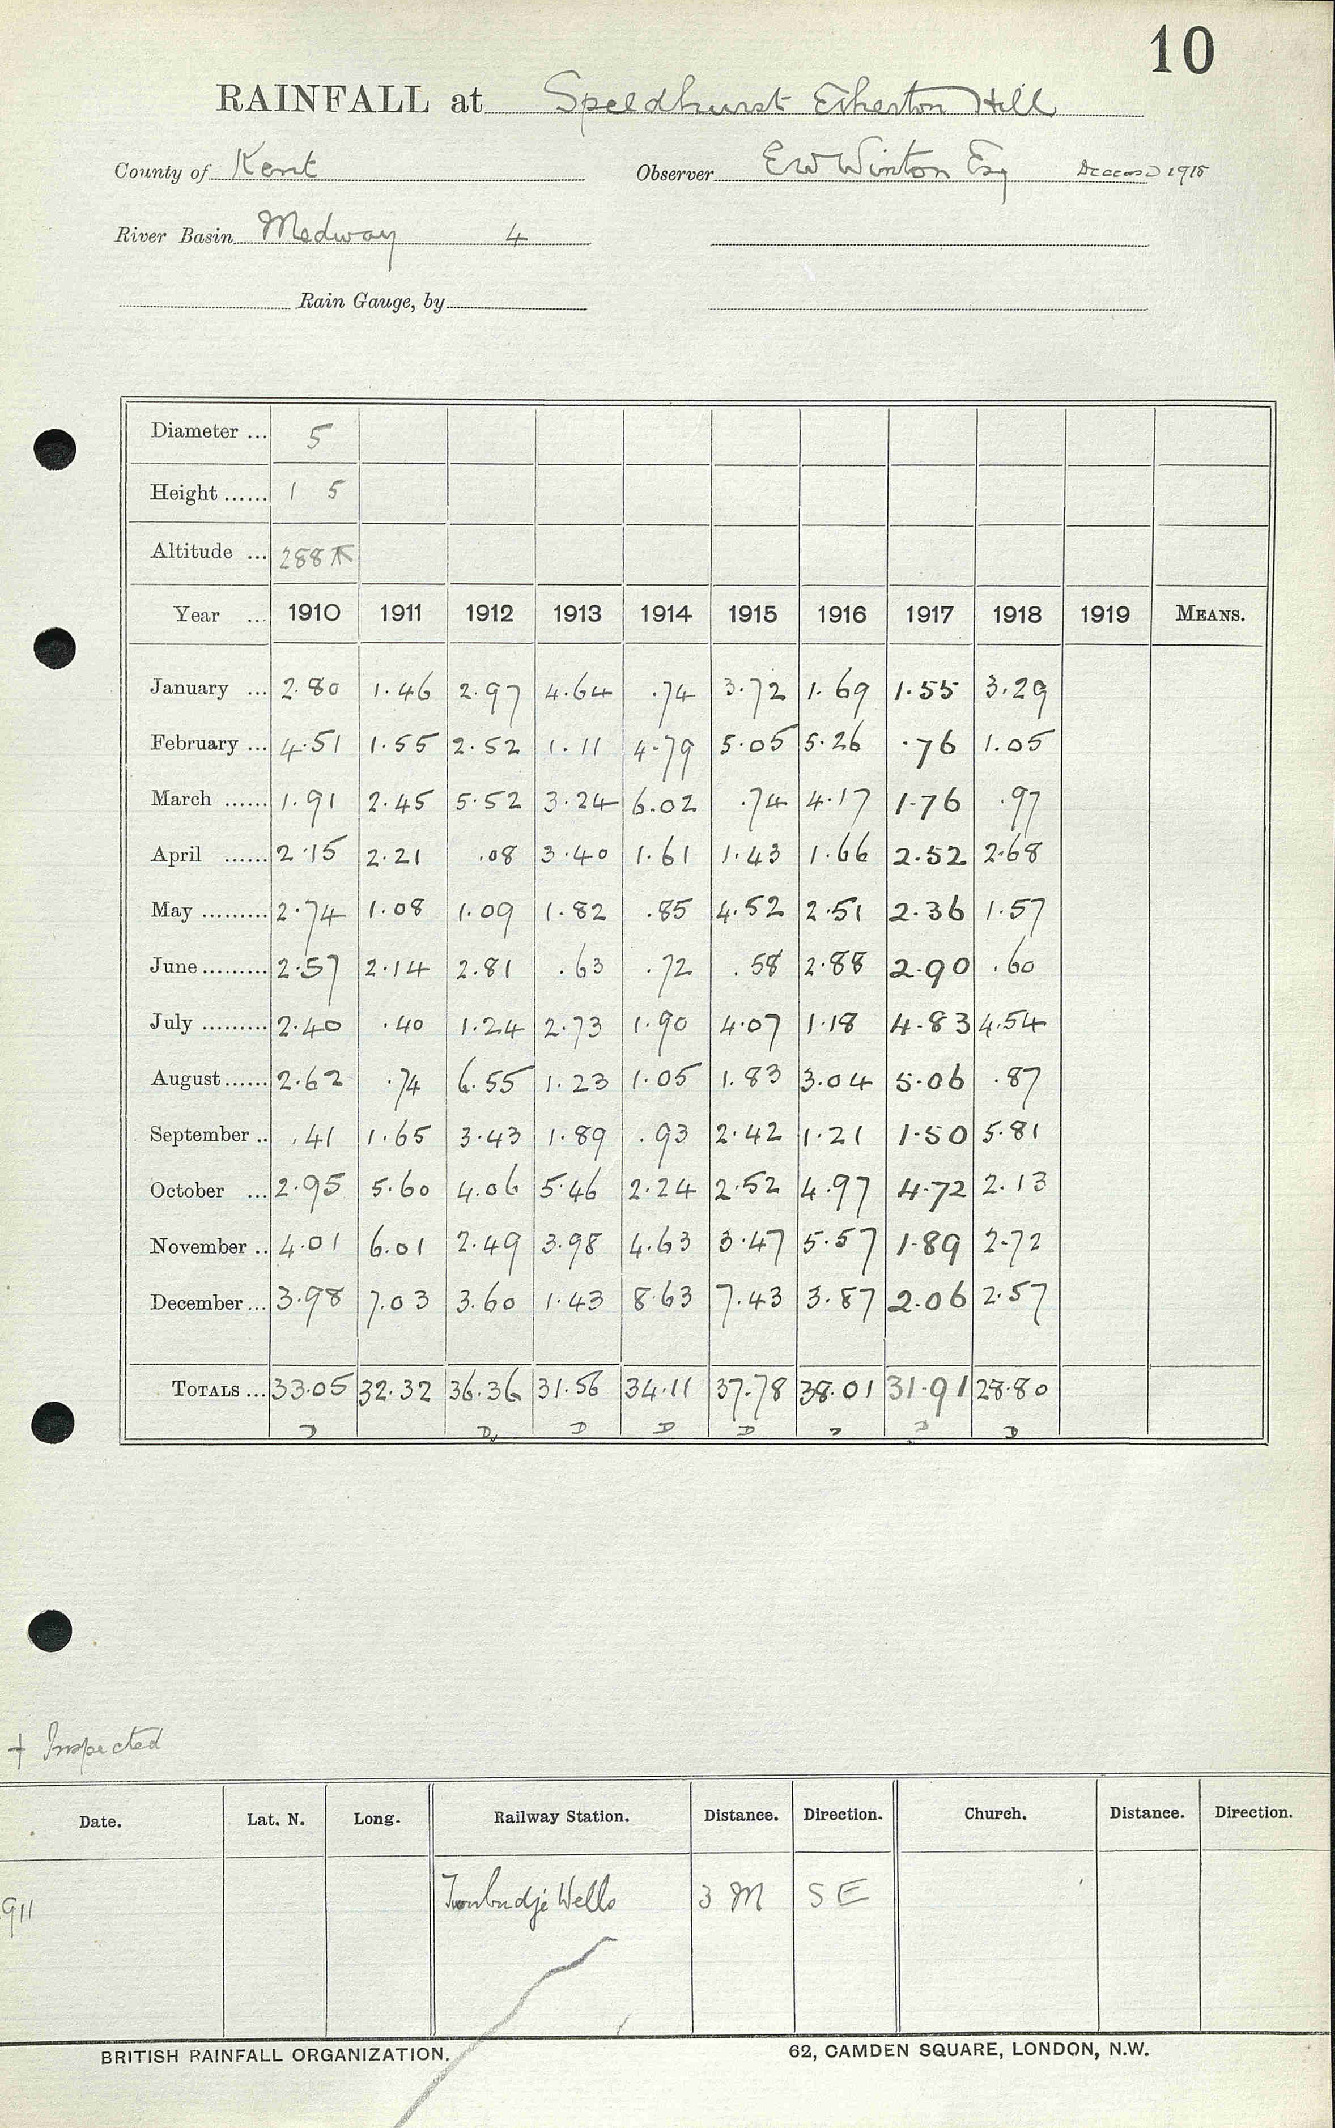 10
RAINFALL at Speldhurst Etherton Hill
County of Kent Observer EW Winton Esq Deceased 1918
River Basin Medway 4
Rain Gauge, by
Diameter ... 5
Height ...... 1 5
Altitude ... 288
Year ... 1910 1911 1912 1913 1914 1915 1916 1917 1918 1919 MEANS.
January ... 2.80 1.46 2.97 4.64 .74 3.72 1.69 1.55 3.29
February ... 4.51 1.55 2.52 1.11 4.79 5.05 5.26 .76 1.05
March ...... 1.91 2.45 5.52 3.24 6.02 .74 4.17 1.76 .97
April ...... 2.15 2.21 .08 3.40 1.61 1.43 1.66 2.52 2.68
May ......... 2.74 1.08 1.09 1.82 .85 4.52 2.51 2.36 1.57
June ......... 2.57 2.14 2.81 .63 .72 .58 2.88 2.90 .60
July ......... 2.40 .40 1.24 2.73 1.90 4.07 1.18 4.83 4.54
August ...... 2.62 .74 6.55 1.23 1.05 1.83 3.04 5.06 .87
September .. .41 1.65 3.43 1.89 .93 2.42 1.21 1.50 5.81
October ... 2.95 5.60 4.06 5.46 2.24 2.52 4.97 4.72 2.13
November .. 4.01 6.01 2.49 3.98 4.63 3.47 5.57 1.89 2.72
December ... 3.98 7.03 3.60 1.43 8.63 7.43 3.87 2.06 2.57
TOTALS ... 33.05 32.32 36.36 31.56 34.11 37.78 38.01 31.91 28.80
D D D D D D D D
+ Inspected
Date. Lat. N. Long. Railway Station. Distance. Direction. Church. Distance. Direction.
911 Tunbridge Wells 3 M S E
BRITISH RAINFALL ORGANIZATION. 62, CAMDEN SQUARE, LONDON, N.W.